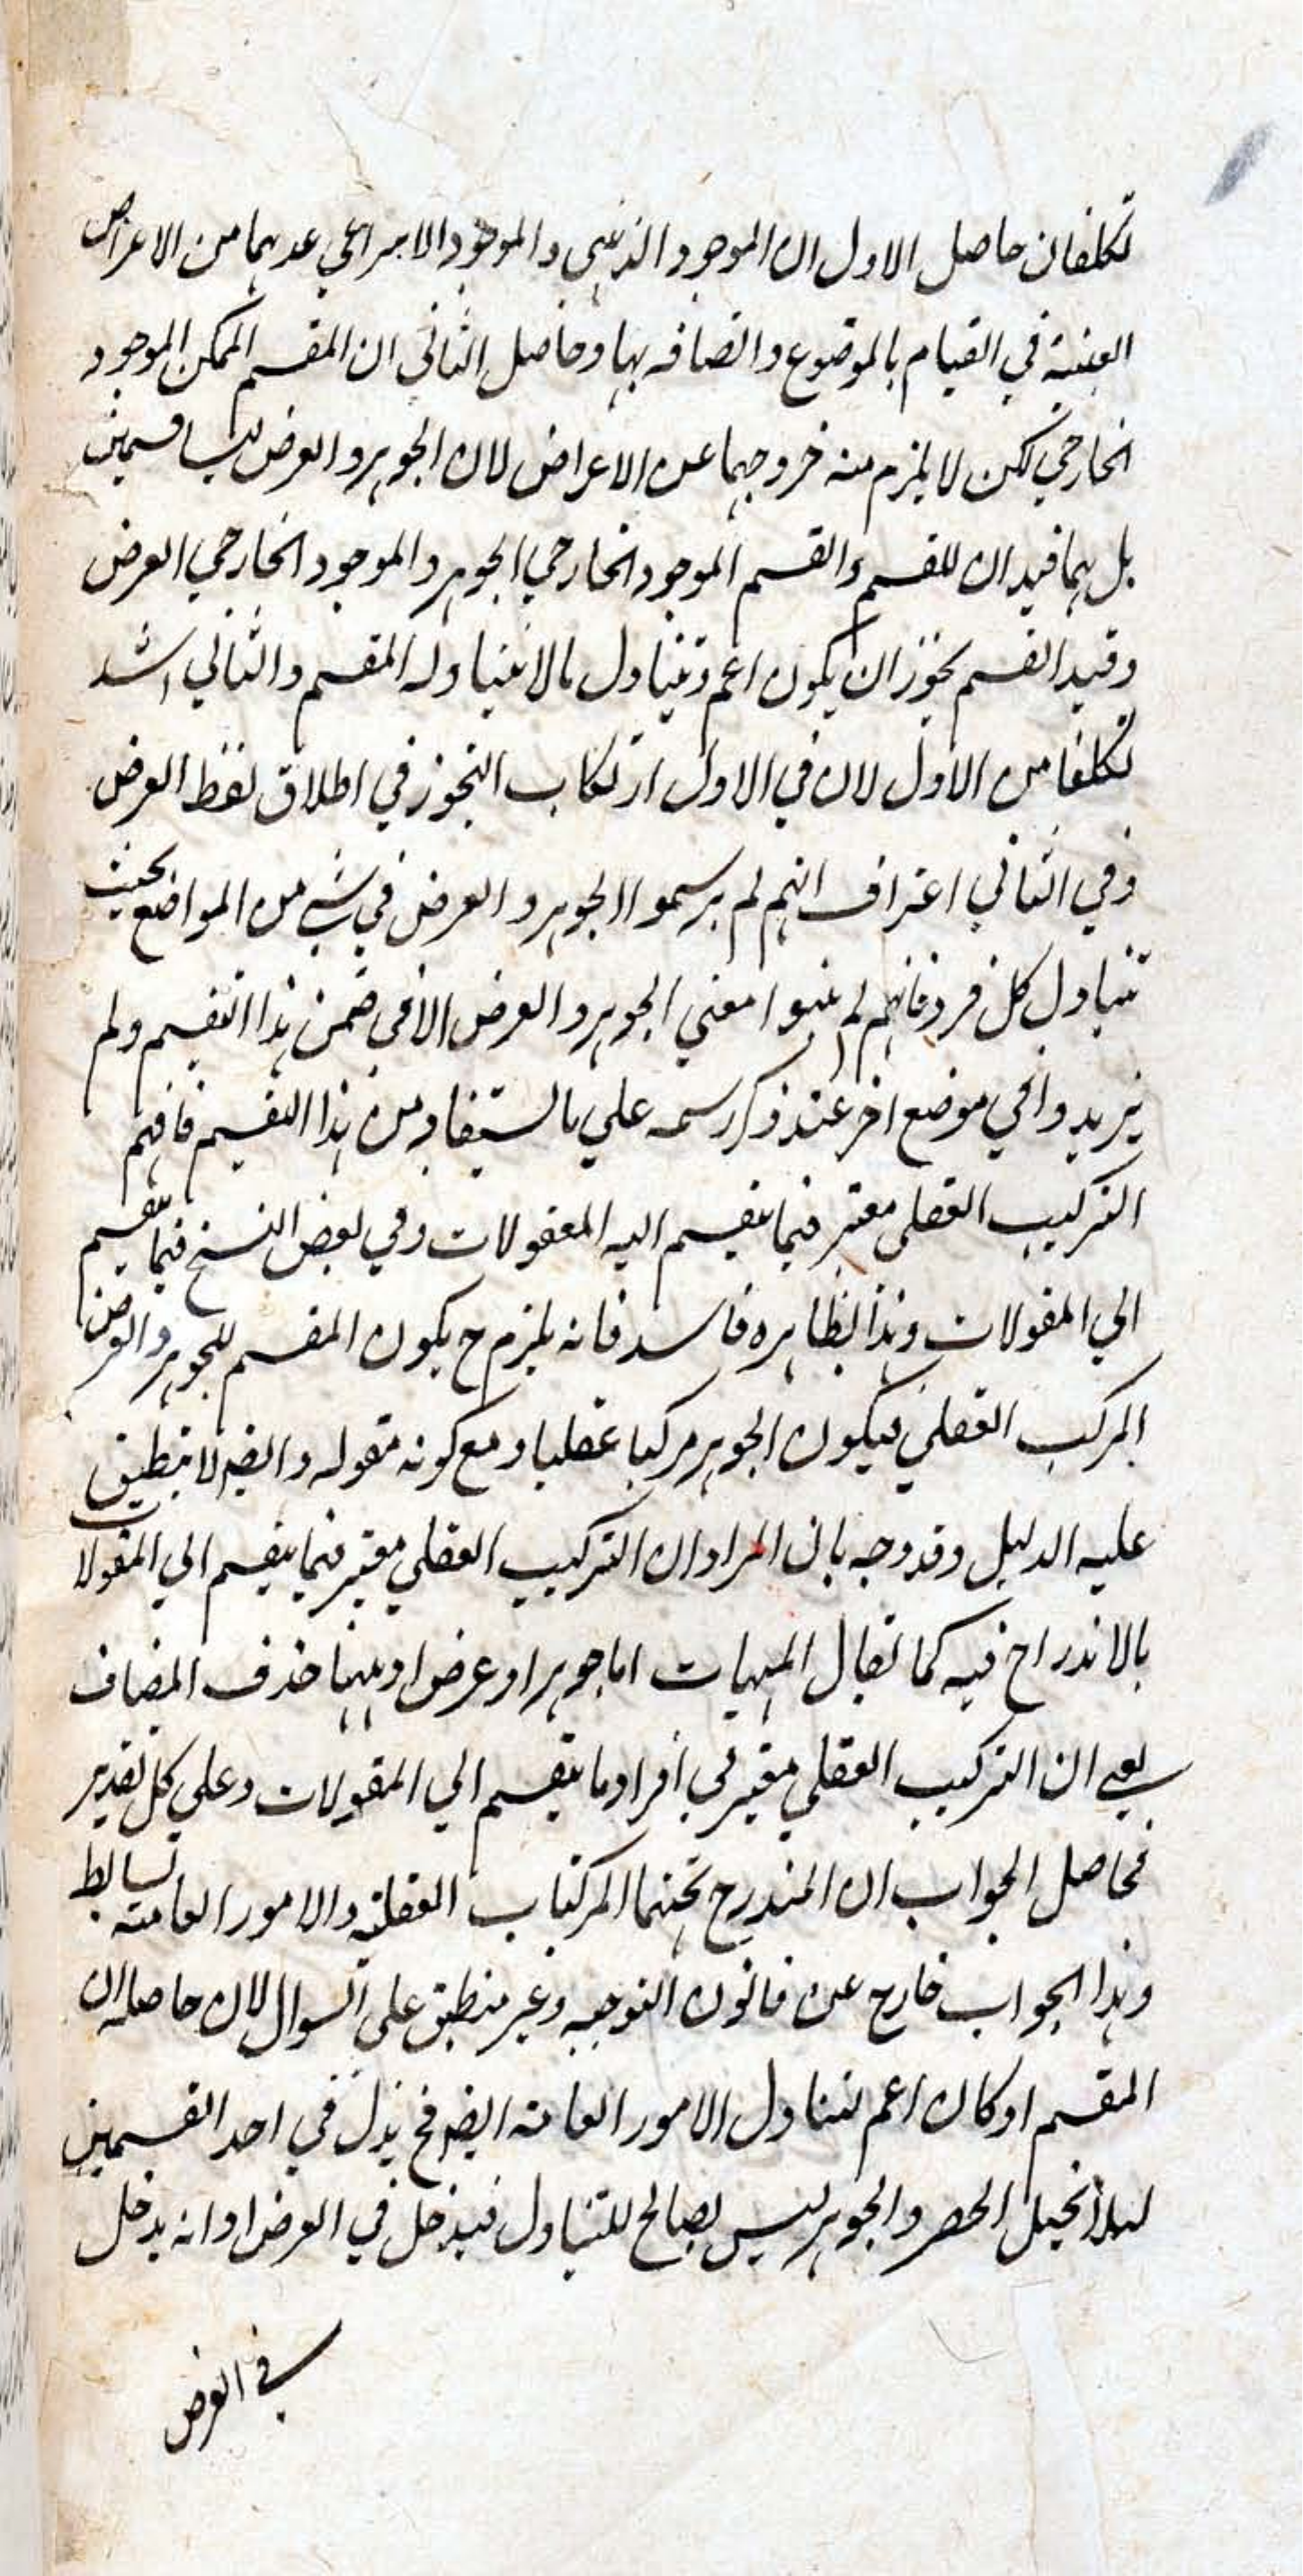 تكلفان حاصل الاول ان الموجود الذهني والموجود الانتزاعي عدهما من الاعراض
العينية في القيام بالموضوع واتصافه بها وحاصل الثاني ان المقسم الممكن الموجود
الخارجي لكن لا يلزم منه خروجهما عن الاعراض لان الجوهر والعرض ليسا قسمين
بل هما قيدان للقسم والقسم الموجود الخارجي الجوهر والموجود الخارجي العرض
وقيد القسم يجوز ان يكون اعم وتتناول ما لا يتناوله المقسم والثاني اشد
تكلفا من الاول لان في الاول ارتكاب التجوز في اطلاق لفظ العرض
وفي الثاني اعتراف انهم لم يرسموا الجوهر والعرض في شي من المواضع بحيث
تتناول كل فرد فانهم لم يبينوا معني الجوهر والعرض الا في ضمن هذا التقسيم ولم
يزيدوا في موضع اخر عند ذكر رسمه علي ما استفاد من هذا التقسيم فافهم
التركيب العقلي معتبر فيما ينقسم اليه المعقولات وفي بعض النسخ فيما ينقسم
الي المقولات وهذا بظاهره فاسد فانه يلزم ح يكون المقسم للجوهر والعرض
المركب العقلي فيكون الجوهر مركبا عقليا ومع كونه مقوله وايضا لا ينطبق
عليه الدليل وقد وجه بان المراد ان التركيب العقلي معتبر فيما ينقسم الي المقولات
بالاندراج فيه كما يقال المهيات اما جوهر او عرض او ههنا حذف المضاف
يعني ان التركيب العقلي معتبر في أفراد ما ينقسم الي المقولات وعلي كل تقدير
فحاصل الجواب ان المندرج تحتهما المركبات العقلية والامور العامة بسائط
وهذا الجواب خارج عن قانون التوجيه وغير منطبق علي السوال لان حاصله ان
المقسم او كان اعم لتناول الامور العامة ايضا فح يدخل في احد القسمين
ليلا يختل الحصر والجوهر ليس بصالح للتناول فيدخل في العرض او انه يدخل
في العرض